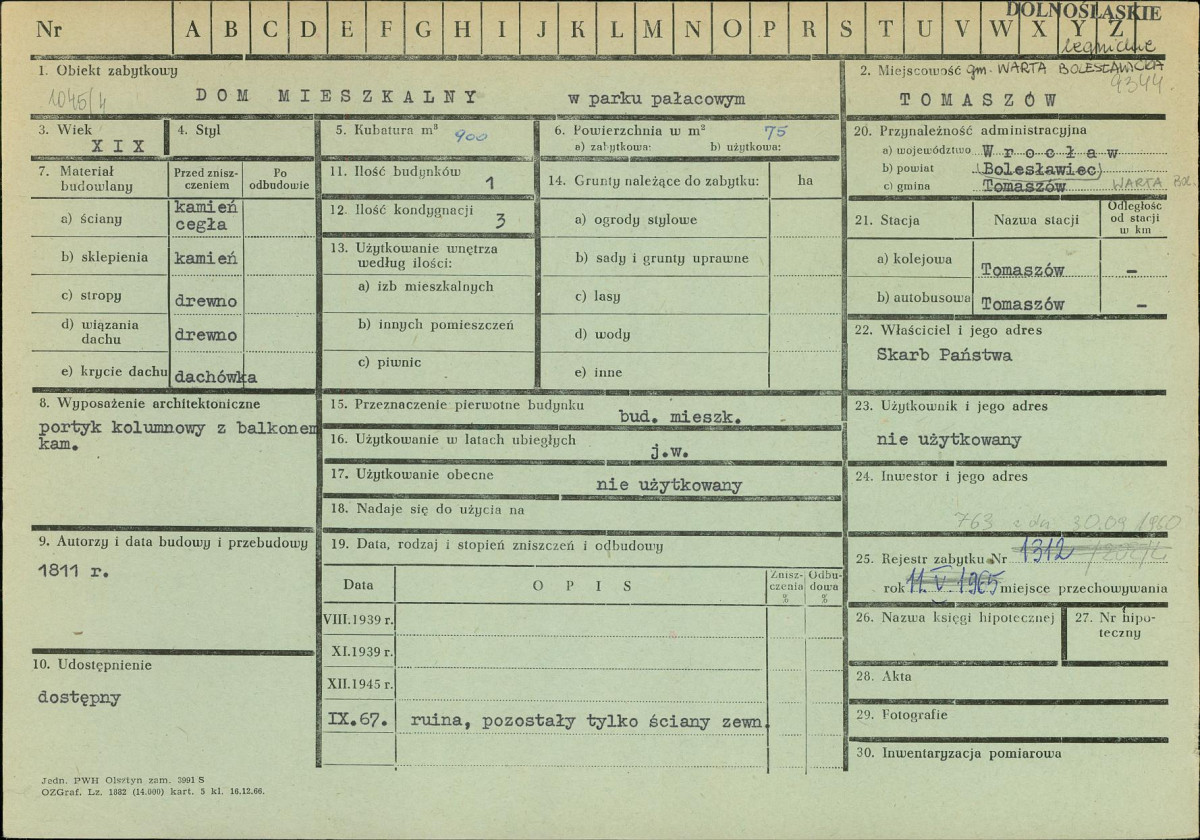 DOLNOŚLĄSKIE
Nr A B C D E F G H I J K L M N O P R S T U V W X Y Z
legnickie
1. Obiekt zabytkowy
1045/4
DOM MIESZKALNY w parku pałacowym
2. Miejscowość gm. WARTA BOLESŁAWICKA
9344.
TOMASZÓW
3. Wiek
XIX
4. Styl
5. Kubatura m³ 900
6. Powierzchnia w m² 75
a) zabytkowa: b) użytkowa:
20. Przynależność administracyjna
a) województwo Wrocław
b) powiat Bolesławiec
c) gmina Tomaszów WARTA BOL.
7. Materiał budowlany
Przed zniszczeniem
Po odbudowie
a) ściany kamień cegła
b) sklepienia kamień
c) stropy drewno
d) wiązania dachu drewno
e) krycie dachu dachówka
11. Ilość budynków 1
12. Ilość kondygnacji 3
13. Użytkowanie wnętrza
według ilości:
a) izb mieszkalnych
b) innych pomieszczeń
c) piwnic
14. Grunty należące do zabytku: ha
a) ogrody stylowe
b) sady i grunty uprawne
c) lasy
d) wody
e) inne
21. Stacja Nazwa stacji Odległość od stacji w km
a) kolejowa Tomaszów –
b) autobusowa Tomaszów –
22. Właściciel i jego adres
Skarb Państwa
8. Wyposażenie architektoniczne
portyk kolumnowy z balkonem
kam.
15. Przeznaczenie pierwotne budynku bud. mieszk.
16. Użytkowanie w latach ubiegłych j.w.
17. Użytkowanie obecne nie użytkowany
18. Nadaje się do użycia na
23. Użytkownik i jego adres
nie użytkowany
24. Inwestor i jego adres
763 z dn. 30.09 1960
9. Autorzy i data budowy i przebudowy
1811 r.
10. Udostępnienie
dostępny
19. Data, rodzaj i stopień zniszczeń i odbudowy
Data OPIS Zniszczenia % Odbudowa %
VIII.1939 r.
XI.1939 r.
XII.1945 r.
IX.67. ruina, pozostały tylko ściany zewn.
25. Rejestr zabytku Nr 1312
rok 11. V 1965 miejsce przechowywania
26. Nazwa księgi hipotecznej
27. Nr hipoteczny
28. Akta
29. Fotografie
30. Inwentaryzacja pomiarowa
Jedn. PWH Olsztyn zam. 3991 S
OZGraf. Lz. 1882 (14.000) kart. 5 kl. 16.12.66.